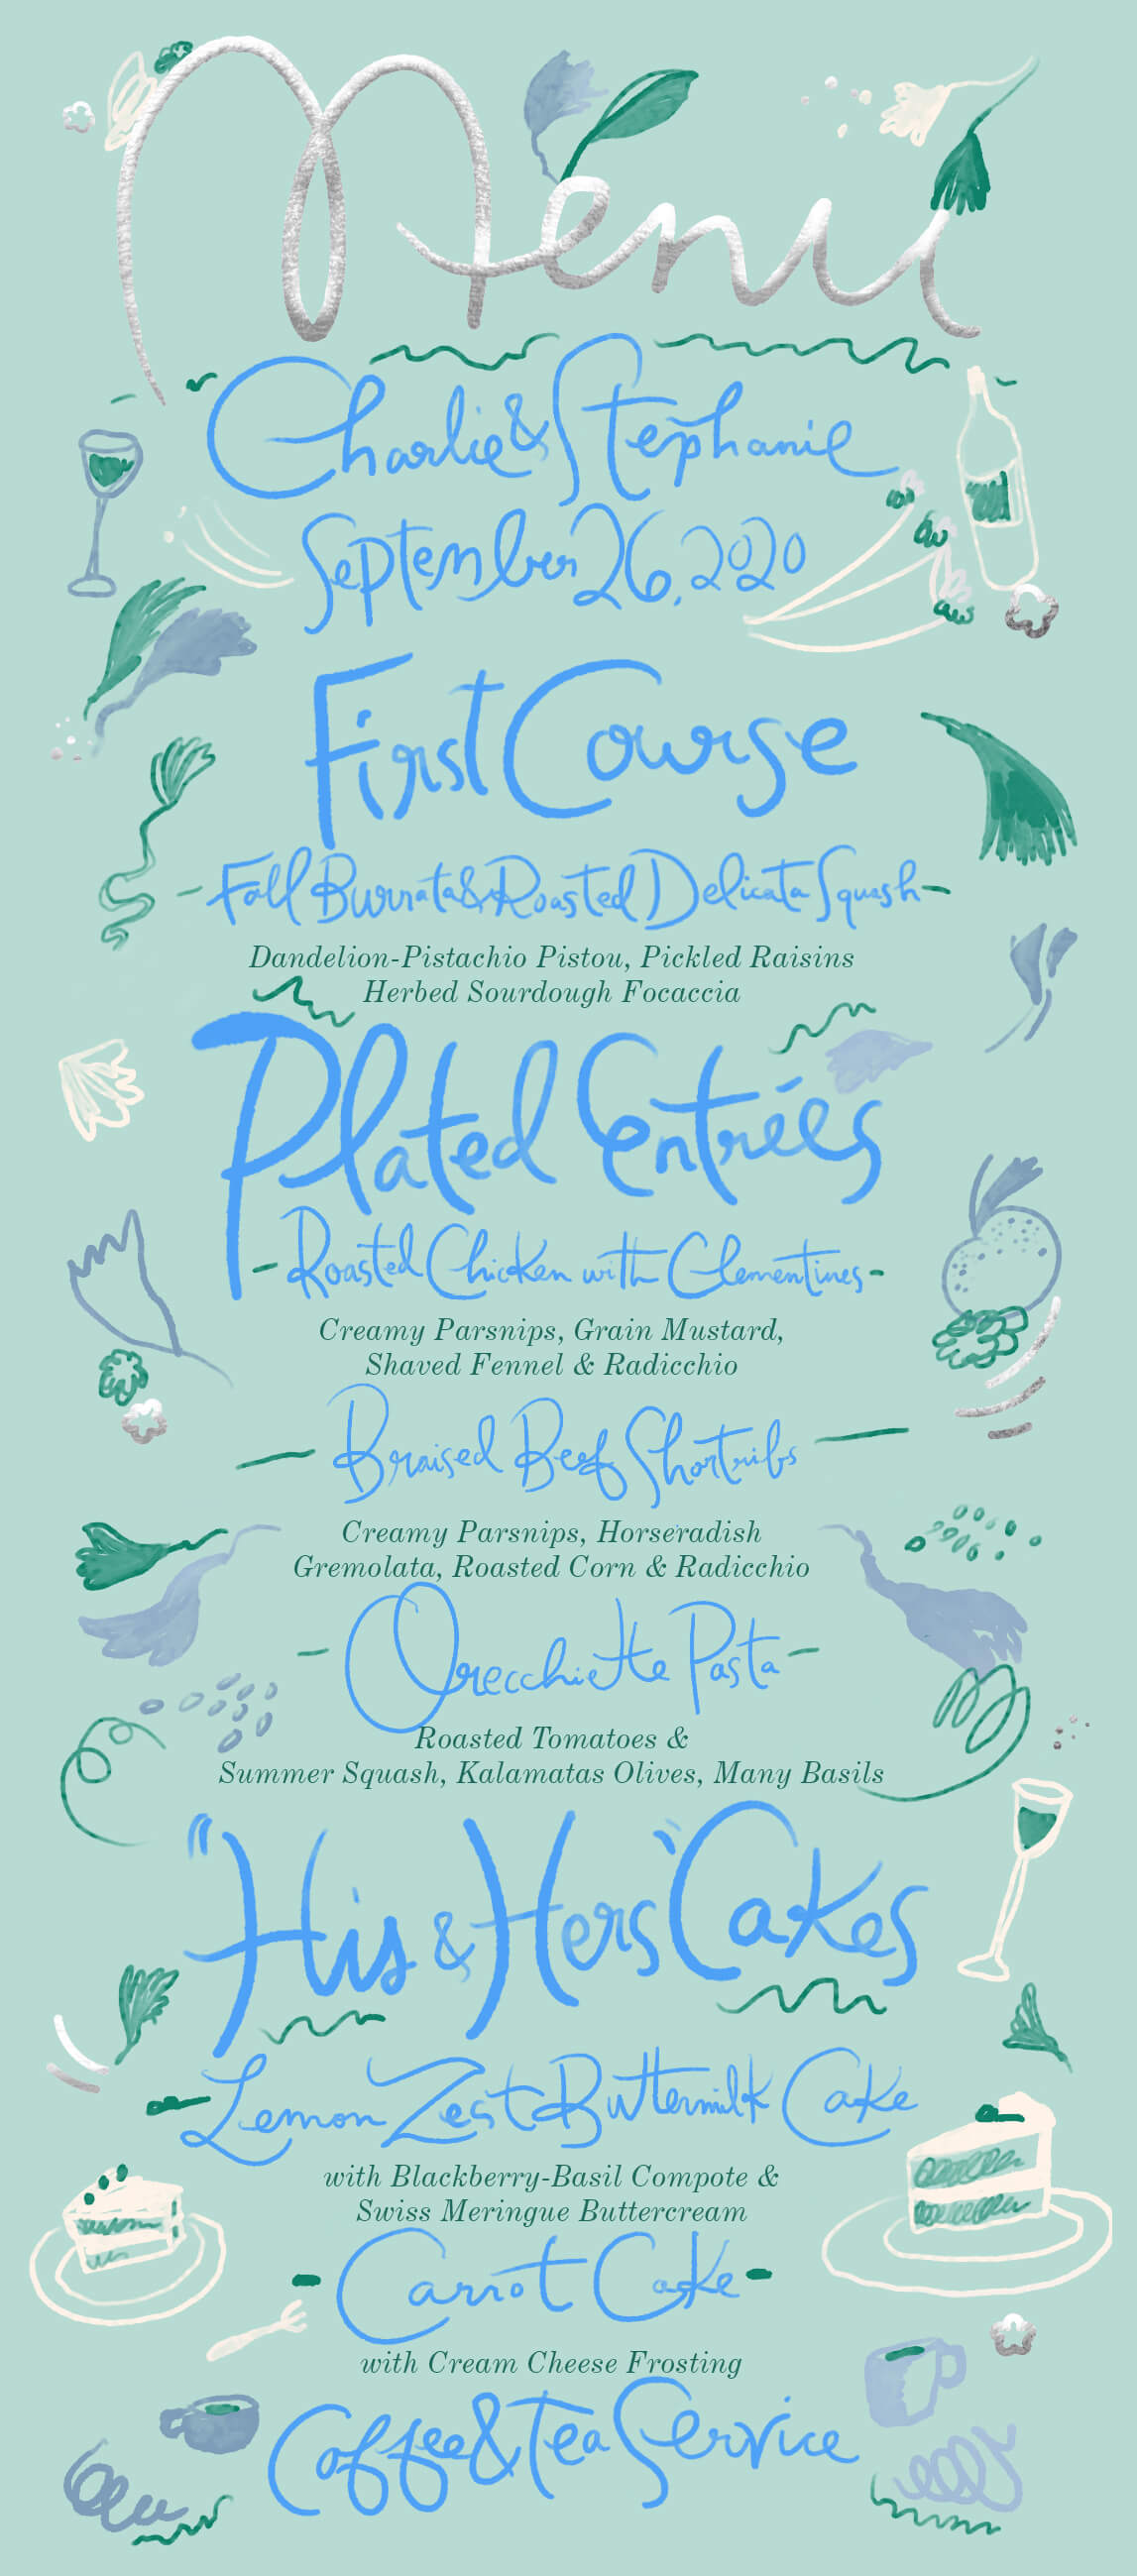 Menu
Charlie & Stephanie
September 26, 2020
First Course
Fall Burrata & Roasted Delicata Squash
Dandelion-Pistachio Pistou, Pickled Raisins
Herbed Sourdough Focaccia
Plated Entrées
Roasted Chicken with Clementines
Creamy Parsnips, Grain Mustard,
Shaved Fennel & Radicchio
Braised Beef Shortribs
Creamy Parsnips, Horseradish
Gremolata, Roasted Corn & Radicchio
Orecchiette Pasta
Roasted Tomatoes &
Summer Squash, Kalamatas Olives, Many Basils
"His & Hers" Cakes
Lemon Zest Buttermilk Cake
with Blackberry-Basil Compote &
Swiss Meringue Buttercream
Carrot Cake
with Cream Cheese Frosting
Coffee & Tea Service